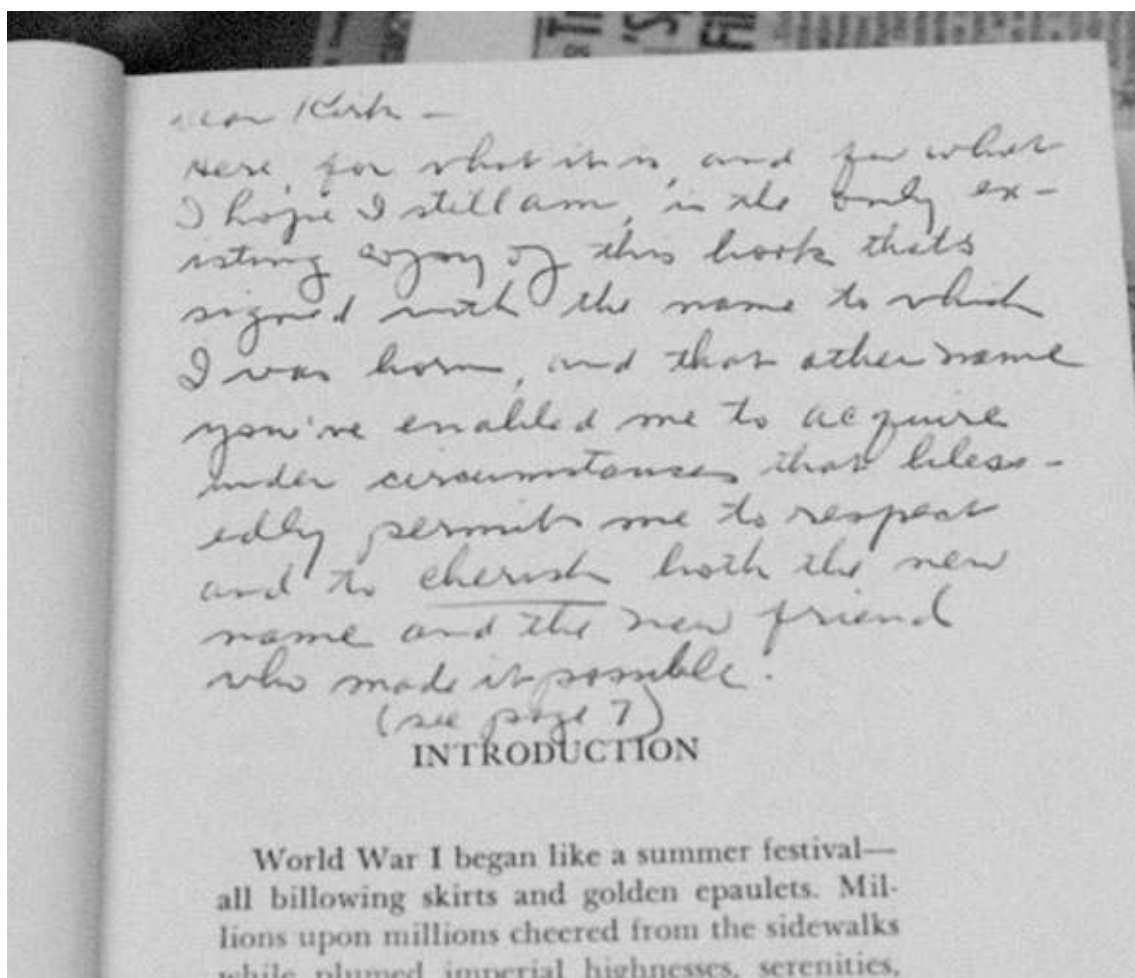 Dear Kirk –
Here, for what it is, and for what
I hope I still am, is the only ex-
isting copy of this book thats
signed with the name to which
I was born, and that other name
you've enabled me to acquire
under circumstances that bless-
edly permit me to respect
and to cherish both the new
name and the new friend
who made it possible.
(see page 7)
INTRODUCTION
World War I began like a summer festival—
all billowing skirts and golden epaulets. Mil-
lions upon millions cheered from the sidewalks
while plumed imperial highnesses, serenities,